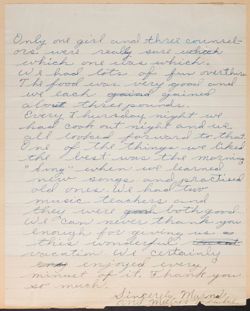 Only one girl and three counsel-
ors were really sure which
which one was which.
We had lots of fun over there
The food was very good and
we each gained gained
about three pounds.
Every Thursday night we
had cook out night and we
all looked forward to that.
One of the things we liked
the best was the morning
"sing" when we learned
new songs and practised
old ones. We had two
music teachers and
they were good both good.
We can never thank you
enough for giving us
this wonderful
vacation. We certainly
enjoyed every
minuet of it. Thank you
so much.
Sincerely,
and